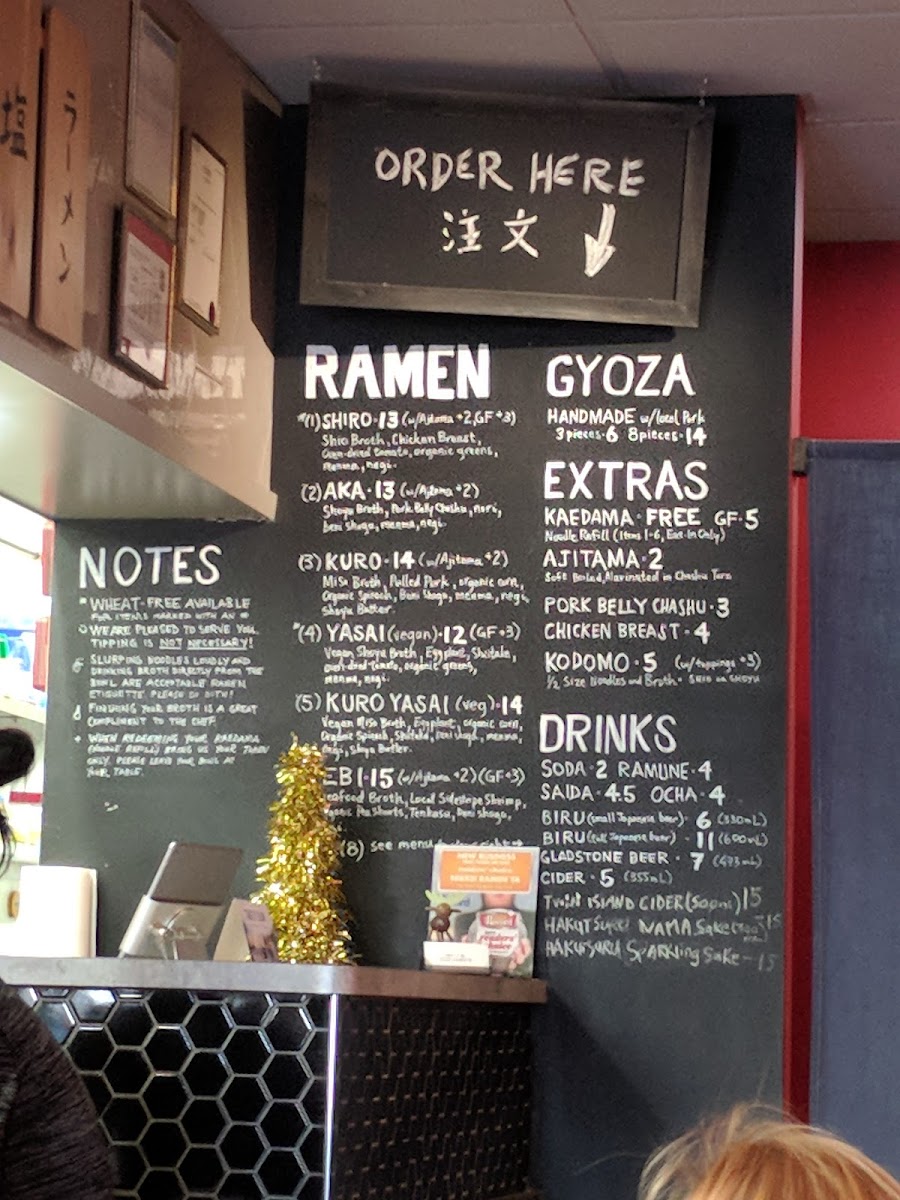 塩
ラーメン
ORDER HERE
注文
RAMEN
*(1) SHIRO·13 (w/Ajitama +2, GF +3)
Shio Broth, Chicken Breast,
oven-dried tomato, organic greens,
menma, negi.
(2) AKA·13 (w/Ajitama +2)
Shoyu Broth, Pork Belly Chashu, nori,
beni shoga, menma, negi.
(3) KURO·14 (w/Ajitama +2)
Miso Broth, Pulled Pork, organic corn,
Organic Spinach, Beni Shoga, menma, negi,
Shoyu Butter.
*(4) YASAI (vegan)·12 (GF +3)
Vegan Shoyu Broth, Eggplant, Shiitake,
oven-dried tomato, organic greens,
menma, negi.
(5) KURO YASAI (veg)·14
Vegan Miso Broth, Eggplant, organic corn,
Organic Spinach, Shiitake, beni shoga, menma,
negi, Shoyu Butter.
EBI·15 (w/Ajitama +2) (GF +3)
Seafood Broth, Local Sidestripe Shrimp,
organic Pea Shoots, Tenkasu, Beni shoga,
(8) see menu
GYOZA
HANDMADE w/local Pork
3 pieces·6 8 pieces·14
EXTRAS
KAEDAMA·FREE GF·5
Noodle Refill (Items 1-6, Eat-In Only)
AJITAMA·2
Soft Boiled, Marinated in Chashu Tare
PORK BELLY CHASHU·3
CHICKEN BREAST·4
KODOMO·5 (w/toppings +3)
1/2 Size Noodles and Broth - SHIO or SHOYU
DRINKS
SODA·2 RAMUNE·4
SAIDA·4.5 OCHA·4
BIRU (small Japanese beer)· 6 (330mL)
BIRU (tall Japanese beer)· 11 (600mL)
GLADSTONE BEER· 7 (473mL)
CIDER·5 (355mL)
TWIN ISLAND CIDER (500ml) 15
NAMA Sake 15
HAKUTSURU SPARKLING Sake - 15
NOTES
* WHEAT-FREE AVAILABLE
FOR ITEMS MARKED WITH AN *
WE ARE PLEASED TO SERVE YOU.
TIPPING IS NOT NECESSARY!
SLURPING NOODLES LOUDLY AND
DRINKING BROTH DIRECTLY FROM THE
BOWL ARE ACCEPTABLE RAMEN
ETIQUETTE. PLEASE DO BOTH!
FINISHING YOUR BROTH IS A GREAT
COMPLIMENT TO THE CHEF.
WHEN REDEEMING YOUR KAEDAMA
(NOODLE REFILL) BRING US YOUR TOKEN
ONLY. PLEASE LEAVE YOUR BOWL AT
YOUR TABLE.
NEW BUSINESS
readers'
choice